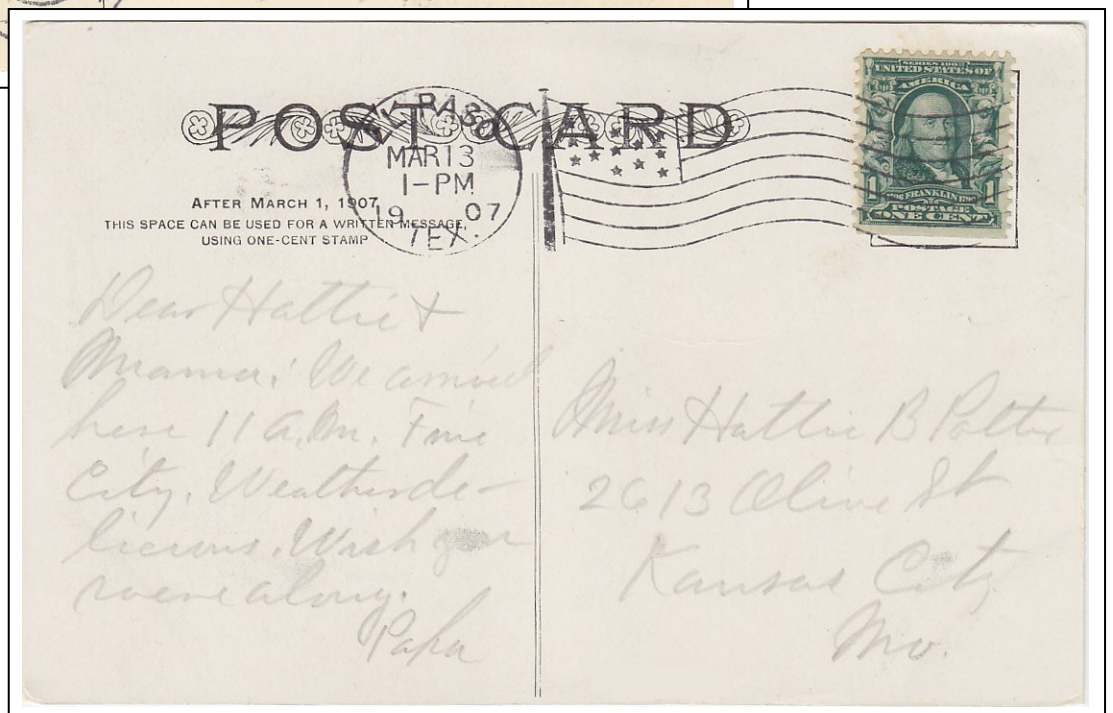 POST CARD
EL PASO
MAR 13
1-PM
1907
TEX.
SERIES 1902
UNITED STATES OF
AMERICA
FRANKLIN
1 1
POSTAGE
ONE CENT
AFTER MARCH 1, 1907,
THIS SPACE CAN BE USED FOR A WRITTEN MESSAGE,
USING ONE-CENT STAMP
Dear Hattie &
Mama: We arrived
here 11 a.m. Fine
City. Weather de-
licious. Wish you
were along.
Papa
Miss Hattie B Potter
2613 Olive St
Kansas City
Mo.